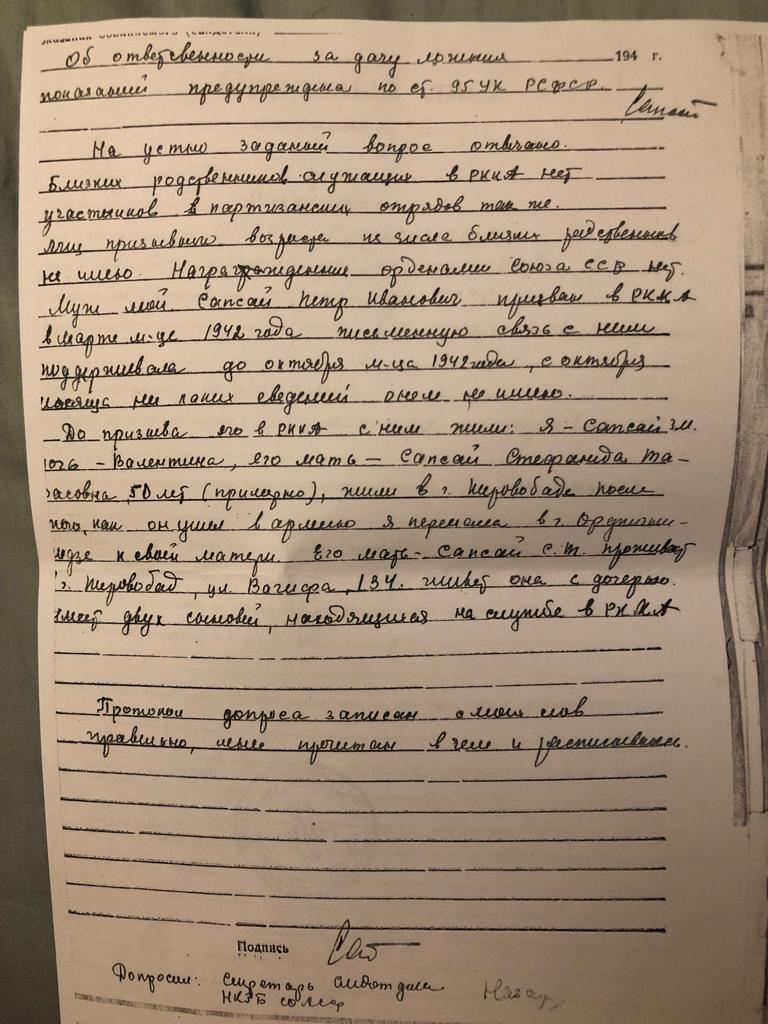 показания обвиняемого (свидетеля)
Об ответсвенности за дачу ложния 194 г.
показаний предупреждена по ст. 95 УК РСФСР.
Сапсай
На устно заданый вопрос отвечаю.
Близких родственников служащих в РККА нет
участников в партизанских отрядов так же.
лиц призывного возраста из числа близких родственников
не имею. Награждённых орденами Союза ССР нет.
Муж мой Сапсай Петр Иванович призван в РККА
в марте м-це 1942 года письменную связь с ним
поддерживала до октября м-ца 1942 года, с октября
месяца ни каких сведений о нем не имею.
До призыва его в РККА с ним жили: я – Сапсай
– Валентина, его мать – Сапсай Стефанида Та-
расовна, 50 лет (примерно), жили в г. Кировобаде после
того, как он ушел в армию я переехала в г. Орджони-
кидзе к своей матери. Его мать – Сапсай С.Т. проживает
г. Кировобад, ул. Вагифа, 134. живет она с дочерью.
имеет двух сыновей, находящихся на службе в РККА
Протокол допроса записан с моих слов
правильно, мне прочитан в чем и расписываюсь.
Подпись
Допросил: Секретарь
НКГБ СОАССР